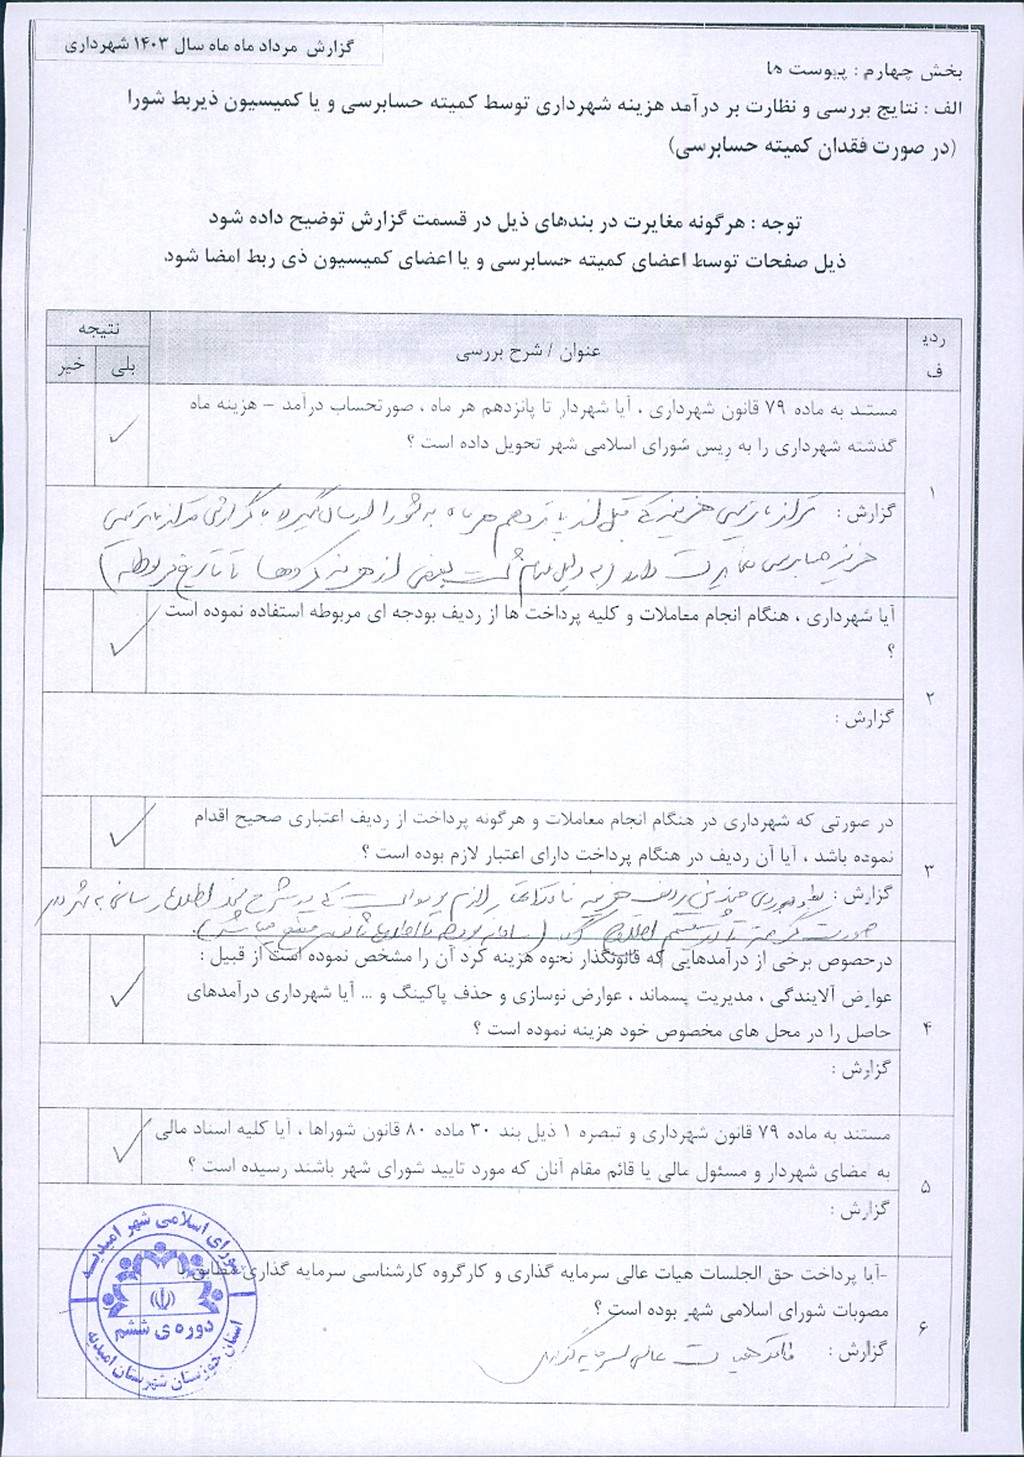 گزارش مرداد ماه ماه سال ۱۴۰۳ شهرداری
بخش چهارم : پیوست ها
الف : نتایج بررسی و نظارت بر درآمد هزینه شهرداری توسط کمیته حسابرسی و یا کمیسیون ذیربط شورا
(در صورت فقدان کمیته حسابرسی)
توجه : هرگونه مغایرت در بندهای ذیل در قسمت گزارش توضیح داده شود
ذیل صفحات توسط اعضای کمیته حسابرسی و یا اعضای کمیسیون ذی ربط امضا شود.
ردیف
عنوان / شرح بررسی
نتیجه
بلی
خیر
۱
مستند به ماده ۷۹ قانون شهرداری ، آیا شهردار تا پانزدهم هر ماه ، صورتحساب درآمد – هزینه ماه
گذشته شهرداری را به ریس شورای اسلامی شهر تحویل داده است ؟
گزارش : تراز هزینه قبل از پانزدهم هر ماه به شورا ارسال با گزارش تراز
حسابرسی مغایرت دارد (به دلیل عدم ثبت بعضی از هزینه کردها تا تاریخ مربوطه)
۲
آیا شهرداری ، هنگام انجام معاملات و کلیه پرداخت ها از ردیف بودجه ای مربوطه استفاده نموده است
؟
گزارش :
۳
در صورتی که شهرداری در هنگام انجام معاملات و هرگونه پرداخت از ردیف اعتباری صحیح اقدام
نموده باشد ، آیا آن ردیف در هنگام پرداخت دارای اعتبار لازم بوده است ؟
گزارش : چندین ردیف هزینه شرح
صورت
۴
درخصوص برخی از درآمدهایی که قانونگذار نحوه هزینه کرد آن را مشخص نموده است از قبیل :
عوارض آلایندگی ، مدیریت پسماند ، عوارض نوسازی و حذف پاکینگ و ... آیا شهرداری درآمدهای
حاصل را در محل های مخصوص خود هزینه نموده است ؟
گزارش :
۵
مستند به ماده ۷۹ قانون شهرداری و تبصره ۱ ذیل بند ۳۰ ماده ۸۰ قانون شوراها ، آیا کلیه اسناد مالی
به مضای شهردار و مسئول مالی یا قائم مقام آنان که مورد تایید شورای شهر باشند رسیده است ؟
گزارش :
۶
-آیا پرداخت حق الجلسات هیات عالی سرمایه گذاری و کارگروه کارشناسی سرمایه گذاری مطابق با
مصوبات شورای اسلامی شهر بوده است ؟
گزارش : فاقد هیئت عالی سرمایه گذاری
شورای اسلامی شهر امیدیه
دوره ی ششم
استان خوزستان شهرستان امیدیه